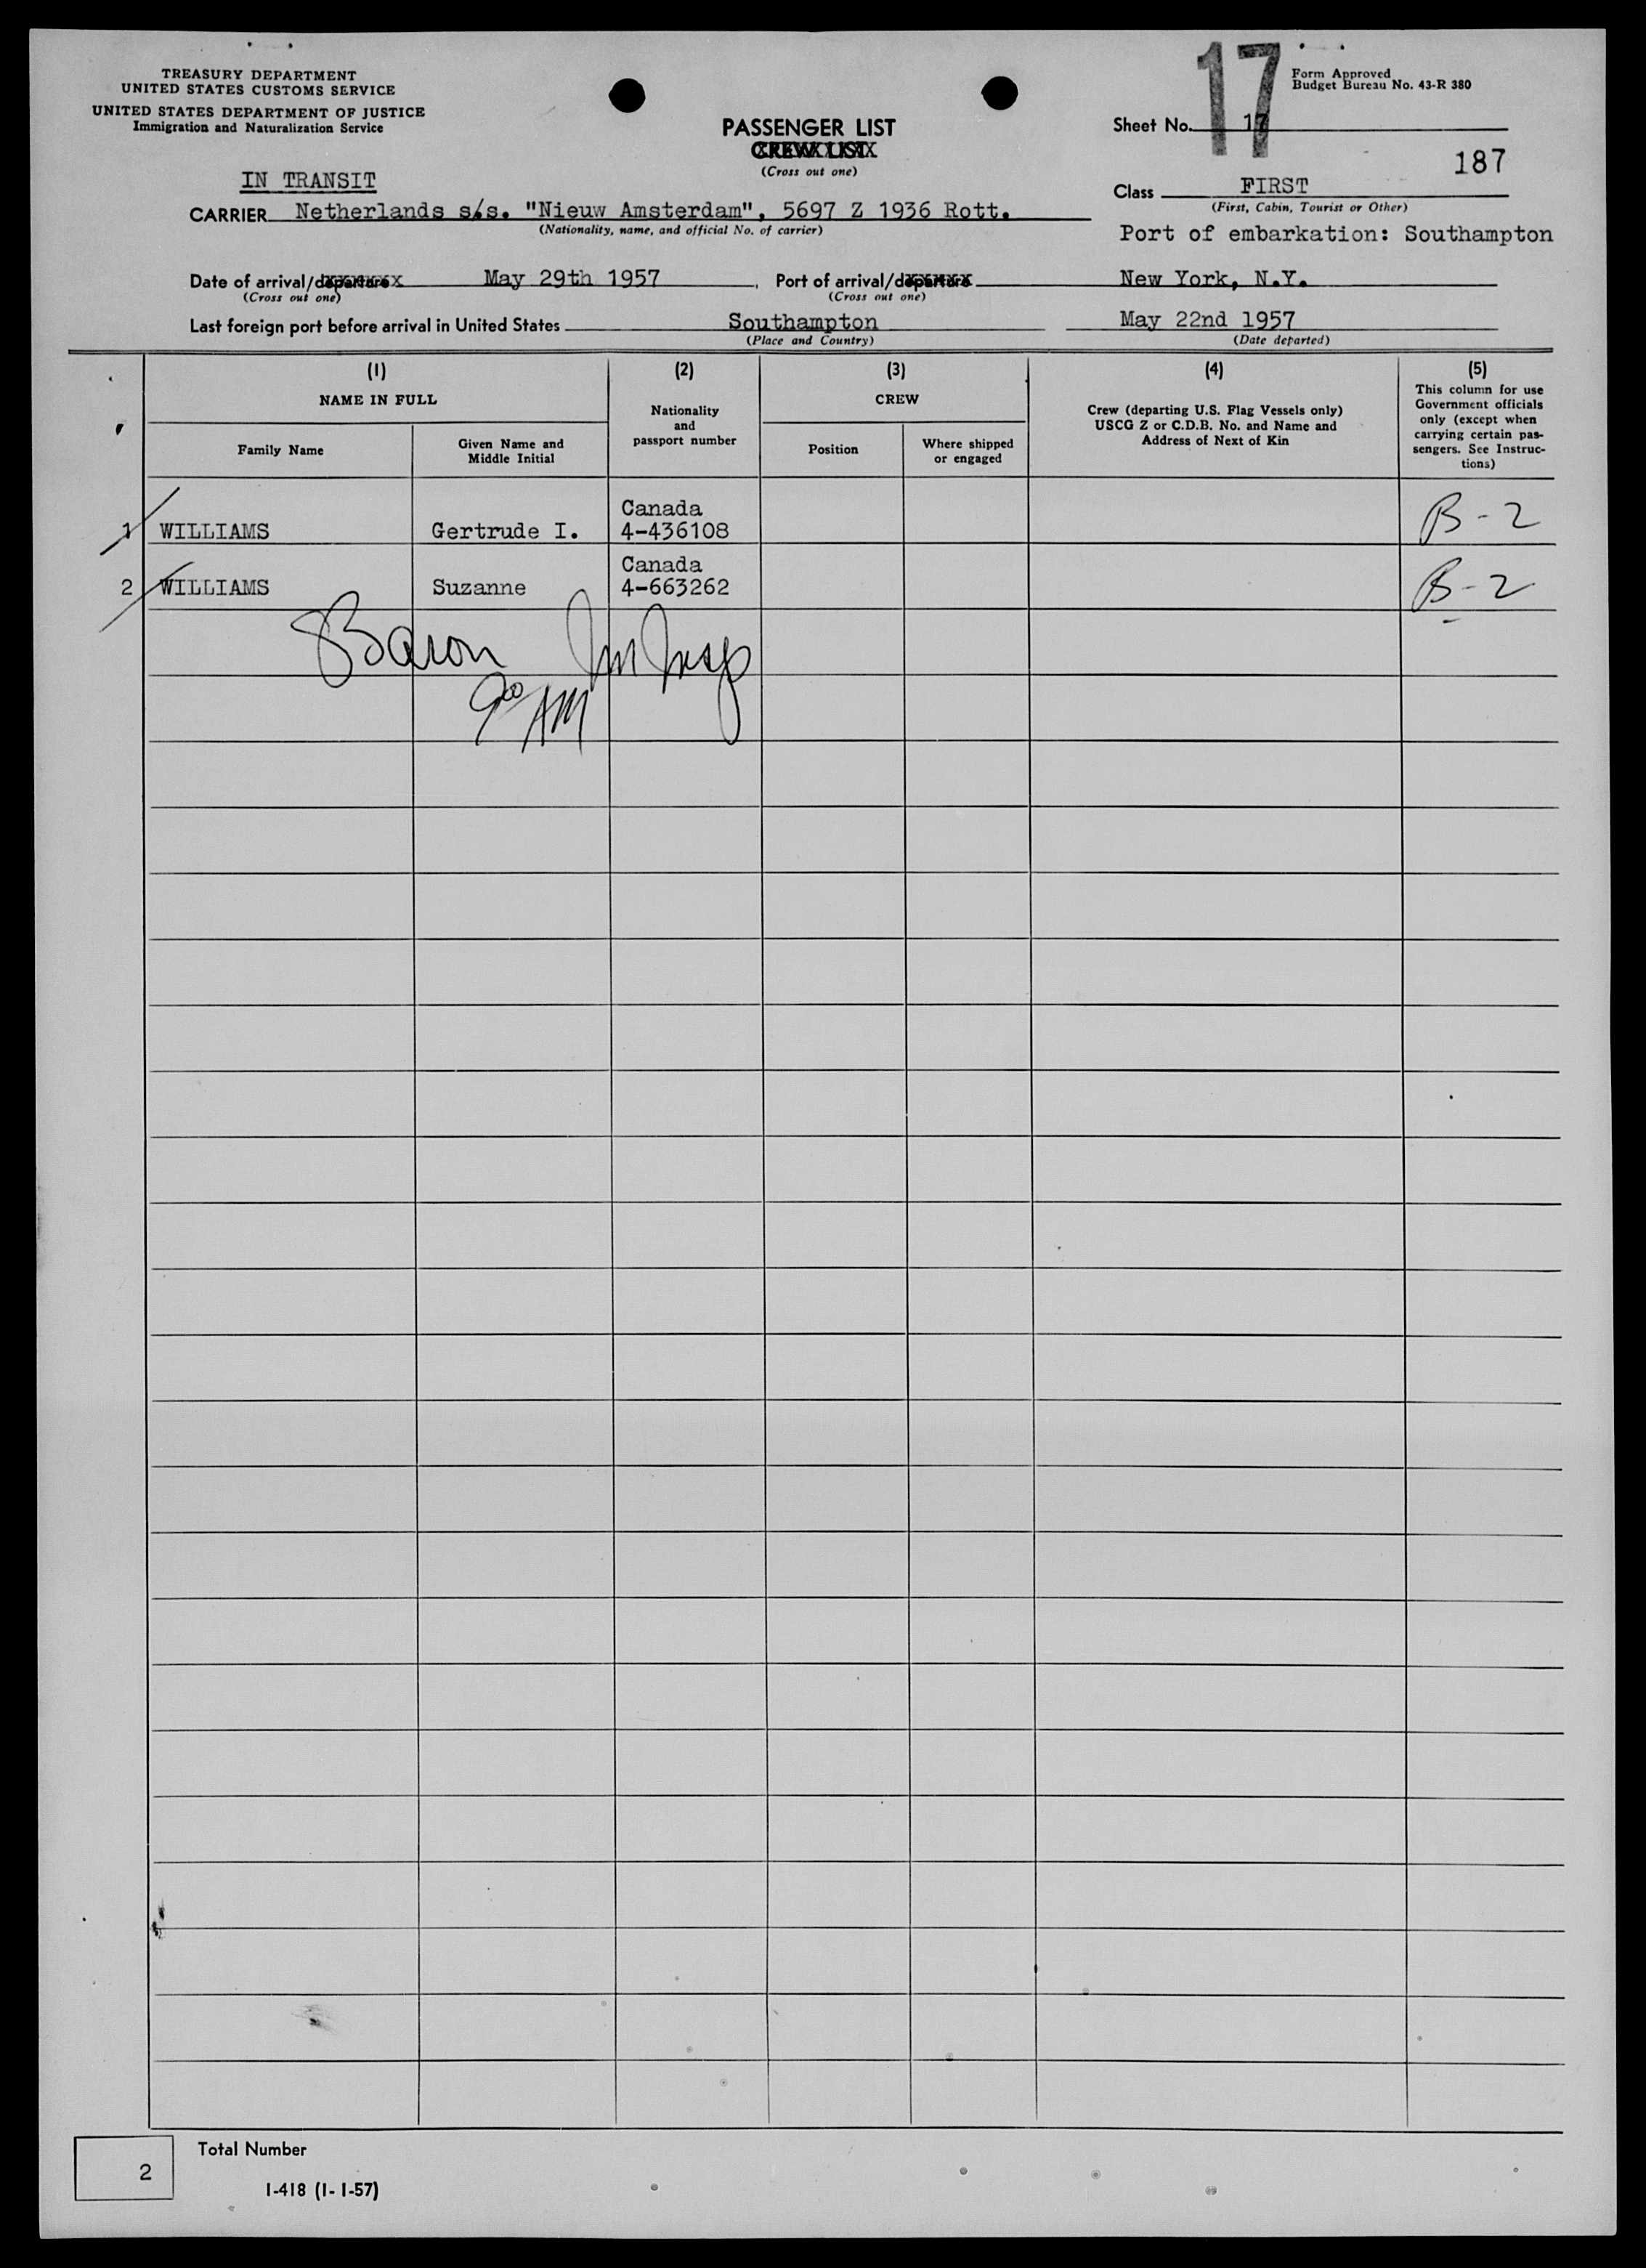 TREASURY DEPARTMENT
UNITED STATES CUSTOMS SERVICE
UNITED STATES DEPARTMENT OF JUSTICE
Immigration and Naturalization Service
17
Form Approved
Budget Bureau No. 43-R 380
PASSENGER LIST
CREW LIST
(Cross out one)
Sheet No. 17
187
IN TRANSIT
Class FIRST
(First, Cabin, Tourist or Other)
CARRIER Netherlands s/s. "Nieuw Amsterdam", 5697 Z 1936 Rott.
(Nationality, name, and official No. of carrier)
Port of embarkation: Southampton
Date of arrival/departure May 29th 1957, Port of arrival/departure New York, N.Y.
(Cross out one) (Cross out one)
Last foreign port before arrival in United States Southampton May 22nd 1957
(Place and Country) (Date departed)
(1) (2) (3) (4) (5)
NAME IN FULL
Family Name
Given Name and
Middle Initial
Nationality
and
passport number
CREW
Position
Where shipped
or engaged
Crew (departing U.S. Flag Vessels only)
USCG Z or C.D.B. No. and Name and
Address of Next of Kin
This column for use
Government officials
only (except when
carrying certain pas-
sengers. See Instruc-
tions)
Canada
1 WILLIAMS Gertrude I. 4-436108 B-2
Canada
2 WILLIAMS Suzanne 4-663262 B-2
Baron Im Insp
9 00 AM
Total Number
2
I-418 (1-1-57)